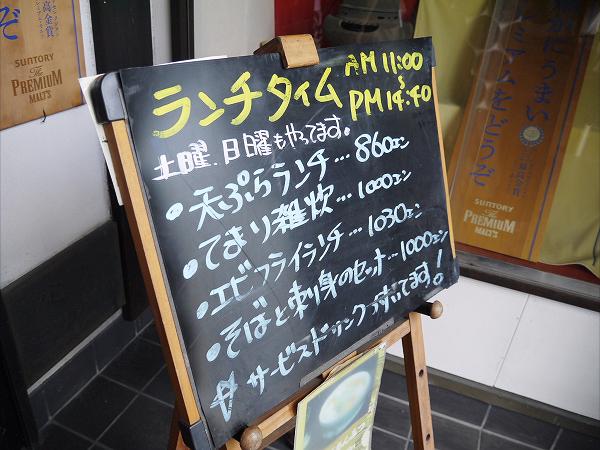 ランチタイム AM 11:00
〜
PM 14:40
土曜、日曜もやってます。
・天ぷらランチ…860エン
・てまり雑炊…1000エン
・エビフライランチ…1030エン
・そばと刺身のセット…1000エン
☆サービスドリンク付いてます!
最高金賞
ぞ
SUNTORY
The
PREMIUM
MALT'S
うまい
プレミアムをどうぞ
SUNTORY
The
PREMIUM
MALT'S